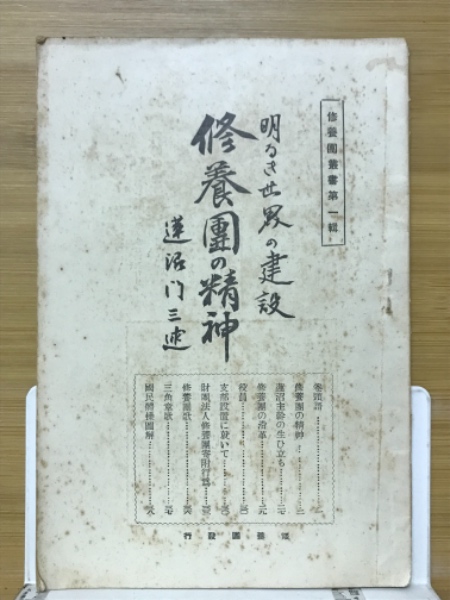 修養團叢書第一輯
明るき世界の建設
修養團の精神
蓮沼門三述
巻頭語……………一
修養團の精神……………三
蓮沼主幹の生ひ立ち……………
修養團の沿革……………
役員……………
支部設置に就いて……………
財團法人修養團寄附行爲……………
修養團歌……………
三角章歌……………
國民體操圖解……………
修養團發行